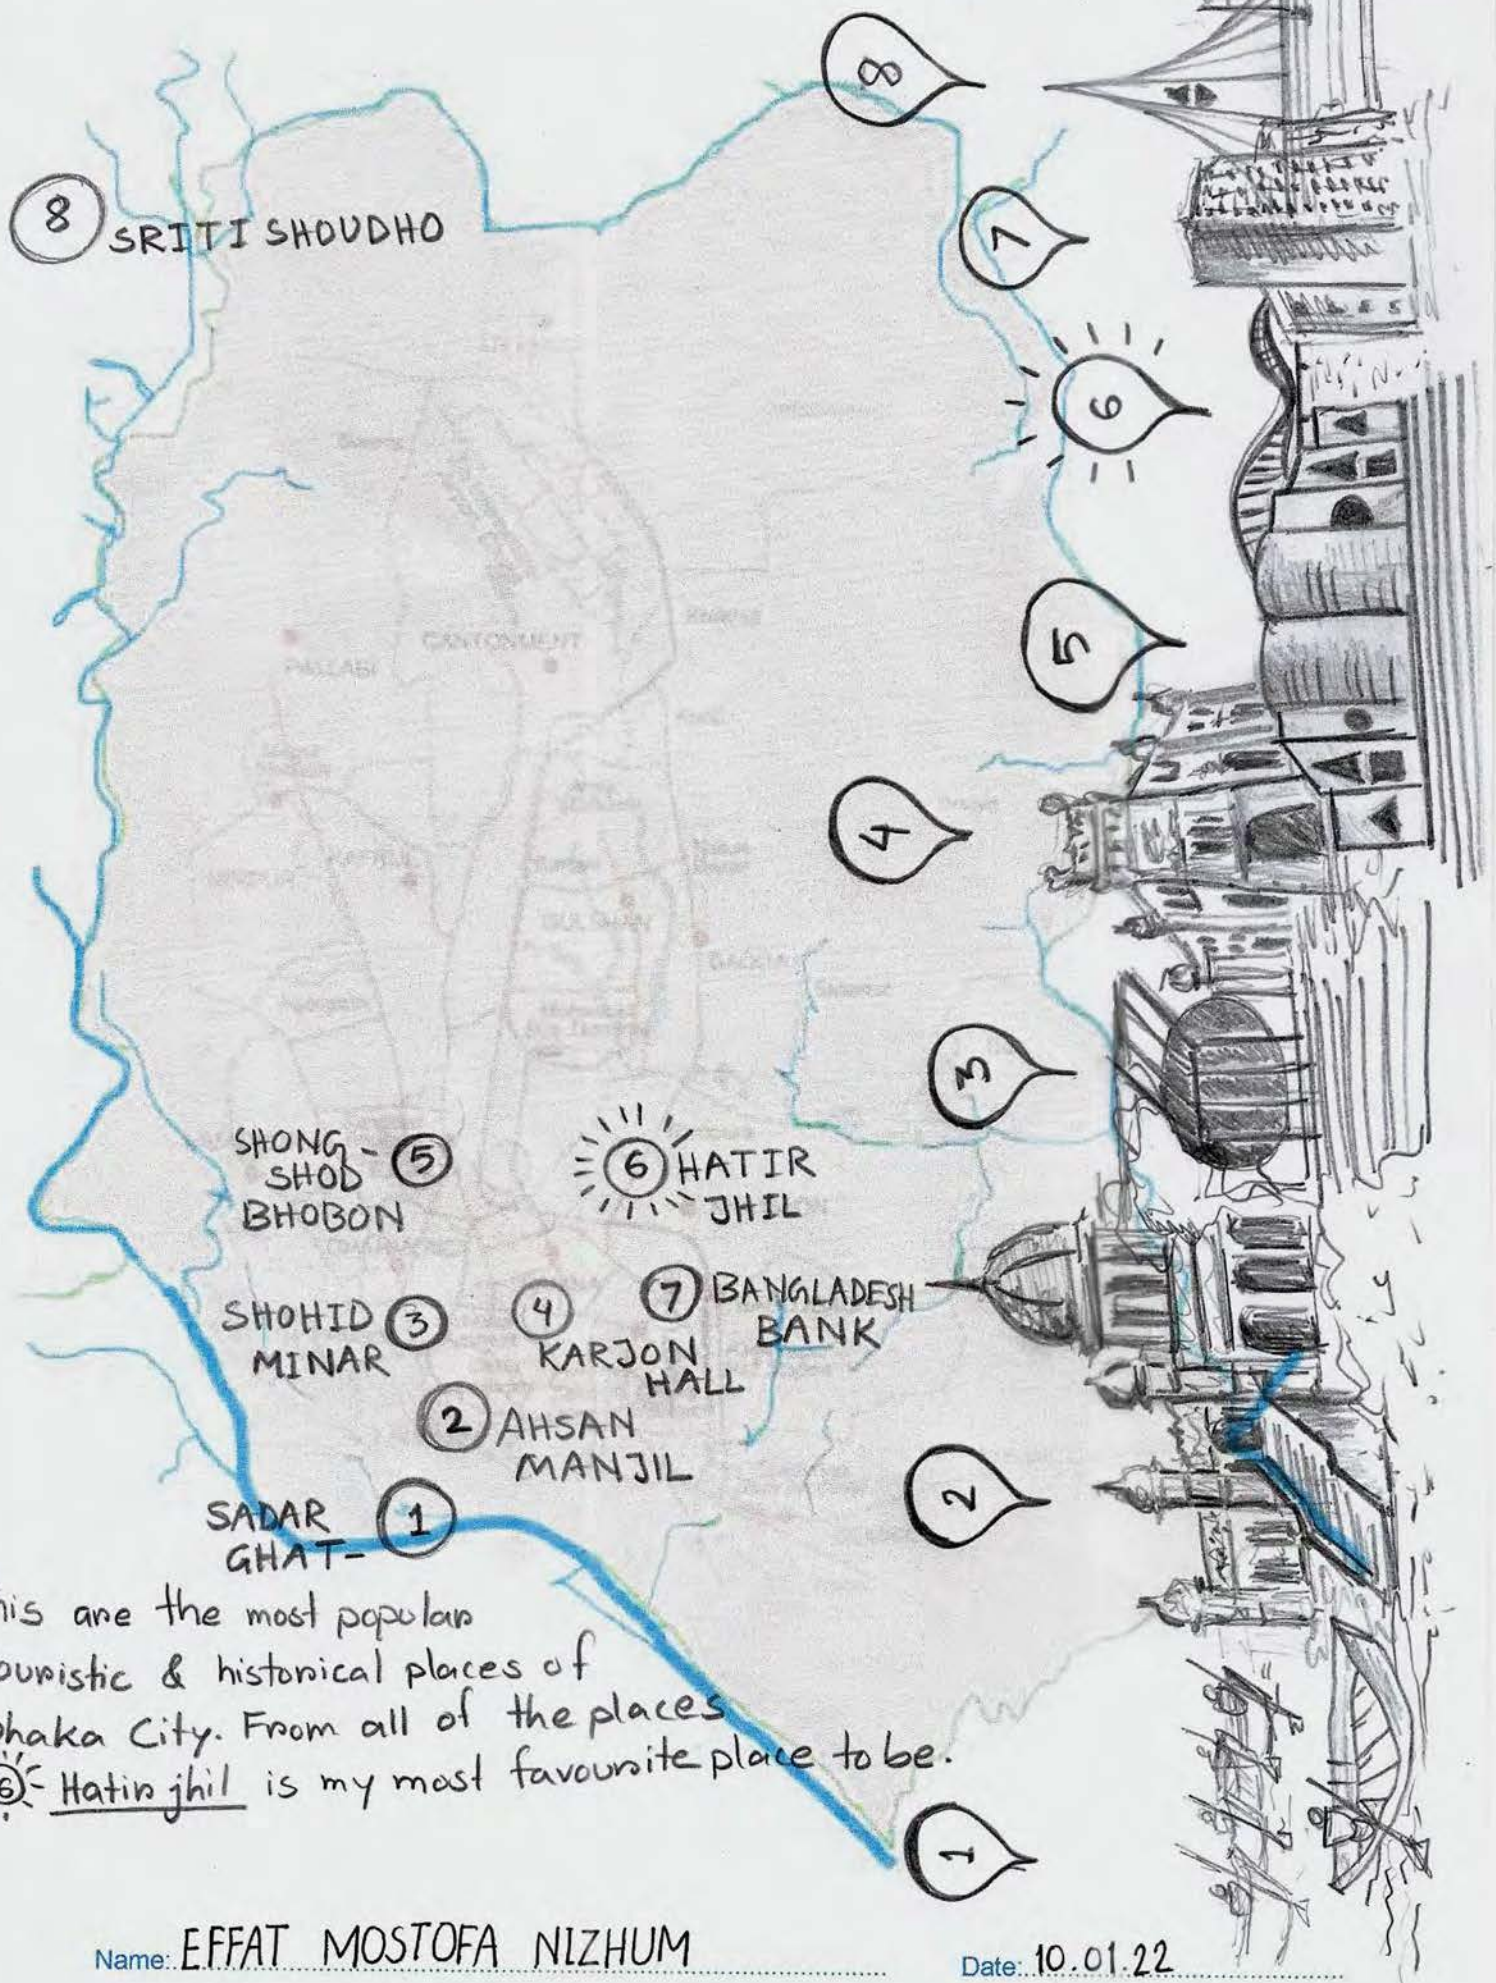 8 SRITI SHOUDHO
8
7
6
5
4
3
2
1
PALLABI
CANTONMENT
SHONG-
SHOD
BHOBON
5
6 HATIR
JHIL
SHOHID
MINAR
3
4
KARJON
HALL
7 BANGLADESH
BANK
2 AHSAN
MANJIL
SADAR
GHAT-
1
his are the most popular
ouristic & historical places of
haka City. From all of the places
6 - Hatir jhil is my most favourite place to be.
Name: EFFAT MOSTOFA NIZHUM
Date: 10.01.22